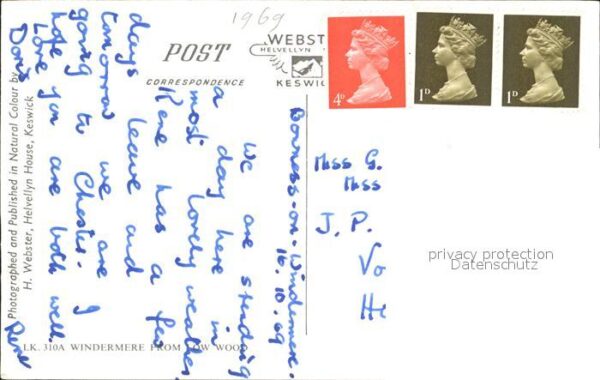 1969
POST
CORRESPONDENCE
WEBST
HELVELLYN
KESWIC
4D
1D
1D
Bowness-on-Windermere.
16.10.69
We are spending
a day here in
most lovely weather.
Rene has a few
days leave and
tomorrow we are
going to Chester. I
hope you are both well.
Love
Doris
Rene
Miss G.
Miss
J. P.
Vo
Hi
privacy protection
Datenschutz
Photographed and Published in Natural Colour by
H. Webster, Helvellyn House, Keswick
LK. 310A WINDERMERE FROM LOW WOOD